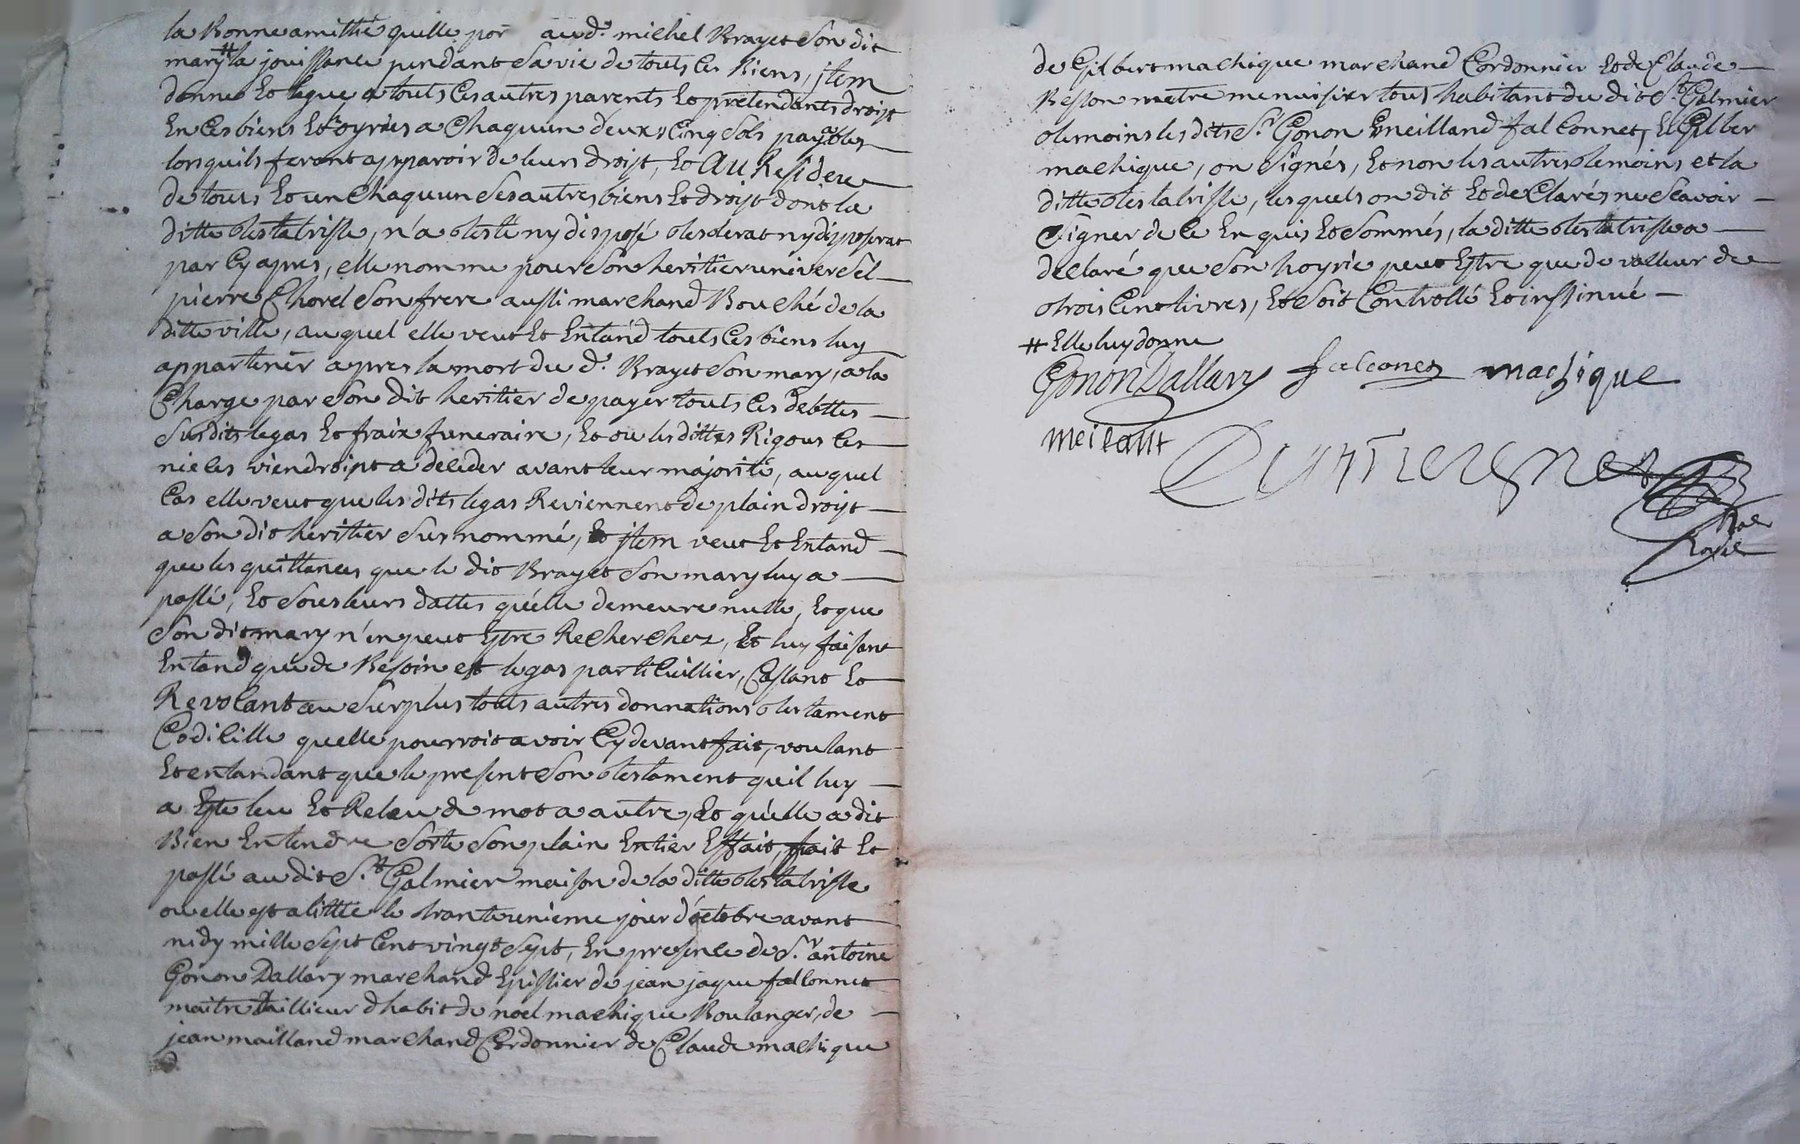 la Bonne amittié quelle por audt. michel Brayet Son dit
mary # la jouissance pendant Sa vie de touts Ces Biens, jtem
donne Et legue a touts Ces autres parents Et pretendants droist
En Ces biens Et oyries a Chaquun deux Cinq Sols payables
lorsquils feront apparoir de leurs droist, Et AU Residue
de touts Et un Chaquun Ses autres biens Et droist dont la
ditte testatrisse, n'a testé ny disposé testerat ny disposerat
par Cy apres, elle nomme pour Son heritier universel
pierre Chorel Son frere aussi marchand Bouché de la
ditte ville, auquel elle veut Et Entand touts Ces biens luy
appartenir apres la mort du dt. Brayet Son mary, a la
Charge par Son dit heritier de payer touts Ces debttes
Susdits legas Et fraix funeraire, Et ou les dittes Rigous Ces
nieces viendroint a deceder avant leur majorité, auquel
Cas elle veut que les dits legas Reviennent de plain droist
a Son dit heritier Surnommé, Et jtem veut Et Entand
que les quittances que le dit Brayet Son mary luy a
passé, Et Sous leurs dattes quelle demeure nulle, Et que
Son dit mary n'en peut Estre Recherchez, Et luy faisant
Entand que de Besoin est legas particuillier, Cassant Et
Revocant au Surplus touts autres donnations testament
Codicille quelle pourroit avoir Cy devant fait, voulant
Et entandant que le present Son testament quil luy
a Esté leu Et Releu de mot a autre, Et quelle a dit
Bien Entendre Sorte Son plain Entier Effait, fait Et
passé au dit St. Galmier maison de la ditte testatrisse
ou elle est alittée le tranteunieme jour d'octobre avant
midy mille Sept Cent vingt Sept, En presence de Sr. antoine
Gonon Dallary marchand Epissier de jean jaque falconnet
maitre taillieur dhabit de noel machique Boulanger, de
jean mailland marchand Cordonnier de Claude machique
de Gilbert machique marchand Cordonnier Et de Claude
Besson metre menuisier tous habitant du dit St. Galmier
temoins les dits Sr. Gonon meilland falconnet, Et Gilber
machique, on Signés, Et non les autres temoins et la
ditte testatrisse, lesquels on dit Et deClarés ne Scavoir
Signer de Ce Enquis Et Sommés, la ditte testatrisse a
declaré que Son hoyrie peut Estre que de valleur de
trois Cent livres, Et Soit Controllé Et insinué
# Elle luy donne
Gonon Dallary falconet machique
meilant
Nore
Royal